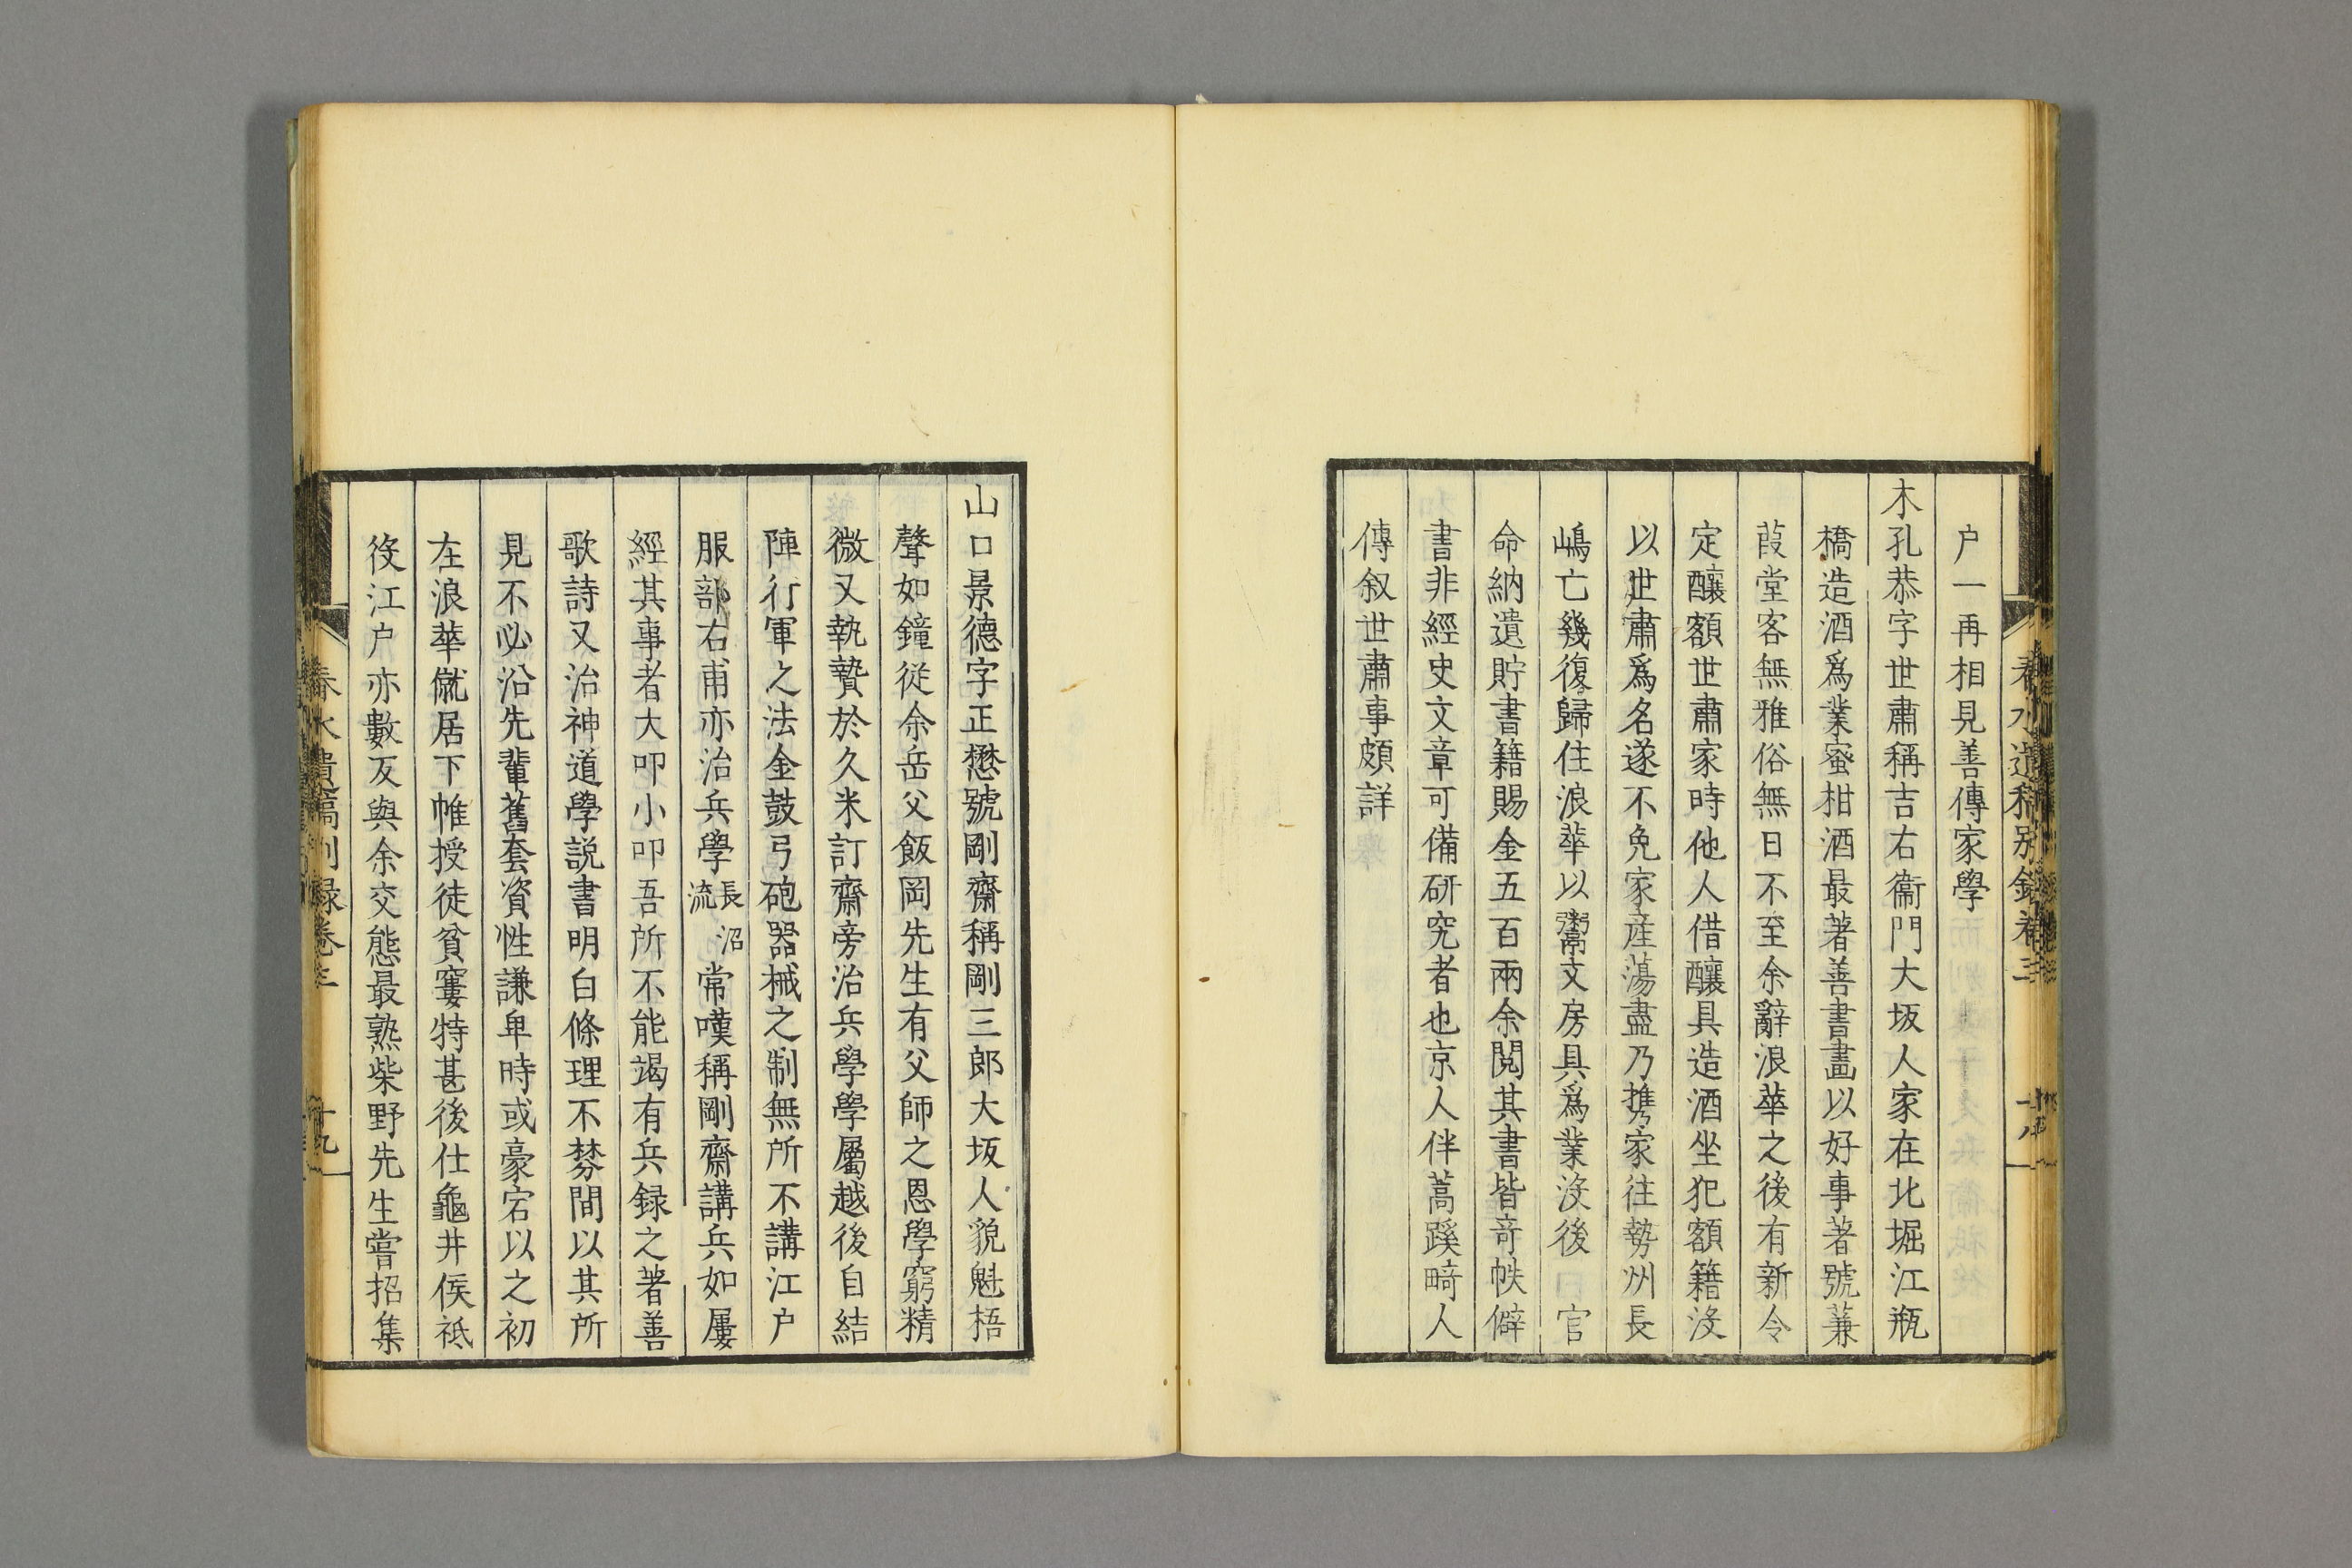 春水遺稿別録卷三
十八
户一再相見善傳家學
木孔恭字世肅稱吉右衞門大坂人家在北堀江瓶
橋造酒爲業蜜柑酒最著善書畵以好事著號蒹
葭堂客無雅俗無日不至余辭浪華之後有新令
定釀額世肅家時他人借釀具造酒坐犯額籍沒
以世肅爲名遂不免家産蕩盡乃携家往勢州長
嶋亡幾復歸住浪華以鬻文房具爲業没後 官
命納遺貯書籍賜金五百兩余閲其書皆竒帙僻
書非經史文章可備研究者也京人伴蒿蹊畸人
傳叙世肅事頗詳
山口景德字正懋號剛齋稱剛三郎大坂人貌魁梧
聲如鐘從余岳父飯岡先生有父師之恩學窮精
微又執贄於久米訂齋旁治兵學學屬越後自結
陣行軍之法金鼓弓砲器械之制無所不講江户
服部右甫亦治兵學長沼流常嘆稱剛齋講兵如屢
經其事者大叩小叩吾所不能竭有兵録之著善
歌詩又治神道學説書明白條理不棼間以其所
見不必沿先輩舊套資性謙卑時或豪宕以之初
在浪華僦居下帷授徒貧窶特甚後仕龜井侯祗
役江户亦數𠬧與余交態最熟柴野先生嘗招集
春水遺稿別録卷三
十九